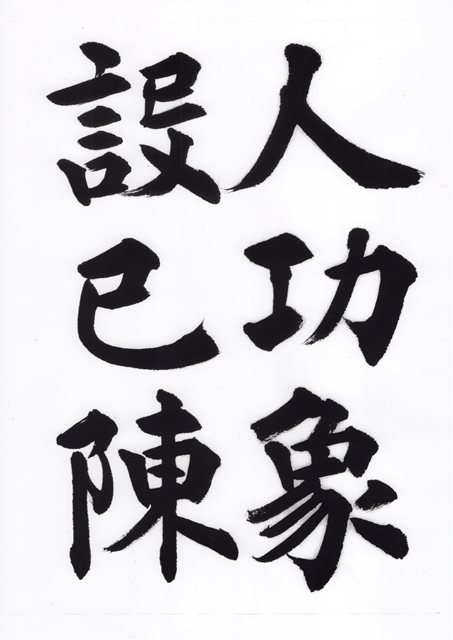 人功象
設已陳